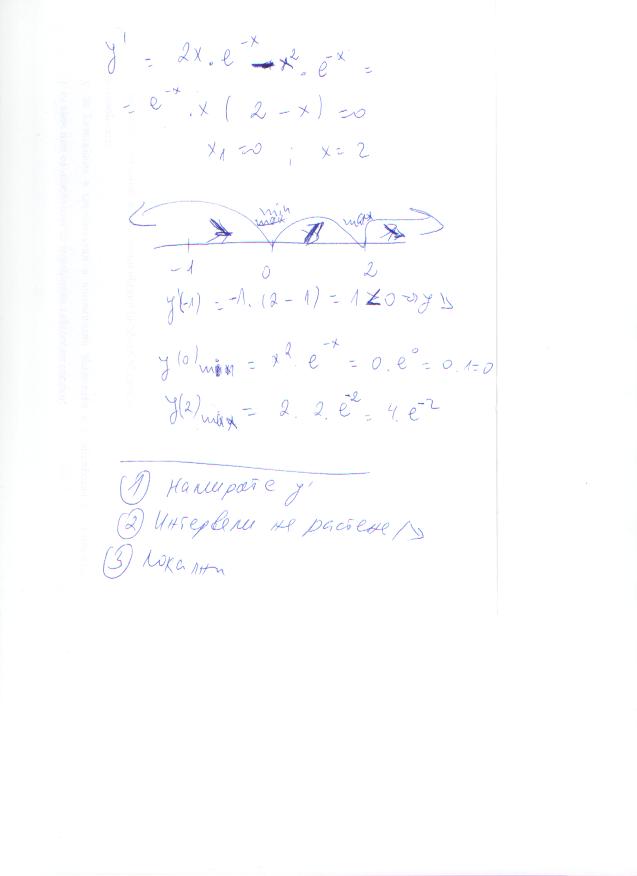 y' = 2x.e^-x - x^2.e^-x =
= e^-x.x(2-x)=0
x1=0 ; x=2
min
max max
-1 0 2
y'(-1) = -1.(2-1) = 1<0 ⇒ y↘
y(0)min = x^2.e^-x = 0.e^0 = 0.1=0
y(2)max = 2.2.e^-2 = 4.e^-2
① Намирате y'
② Интервали на растене/↘
③ Локални